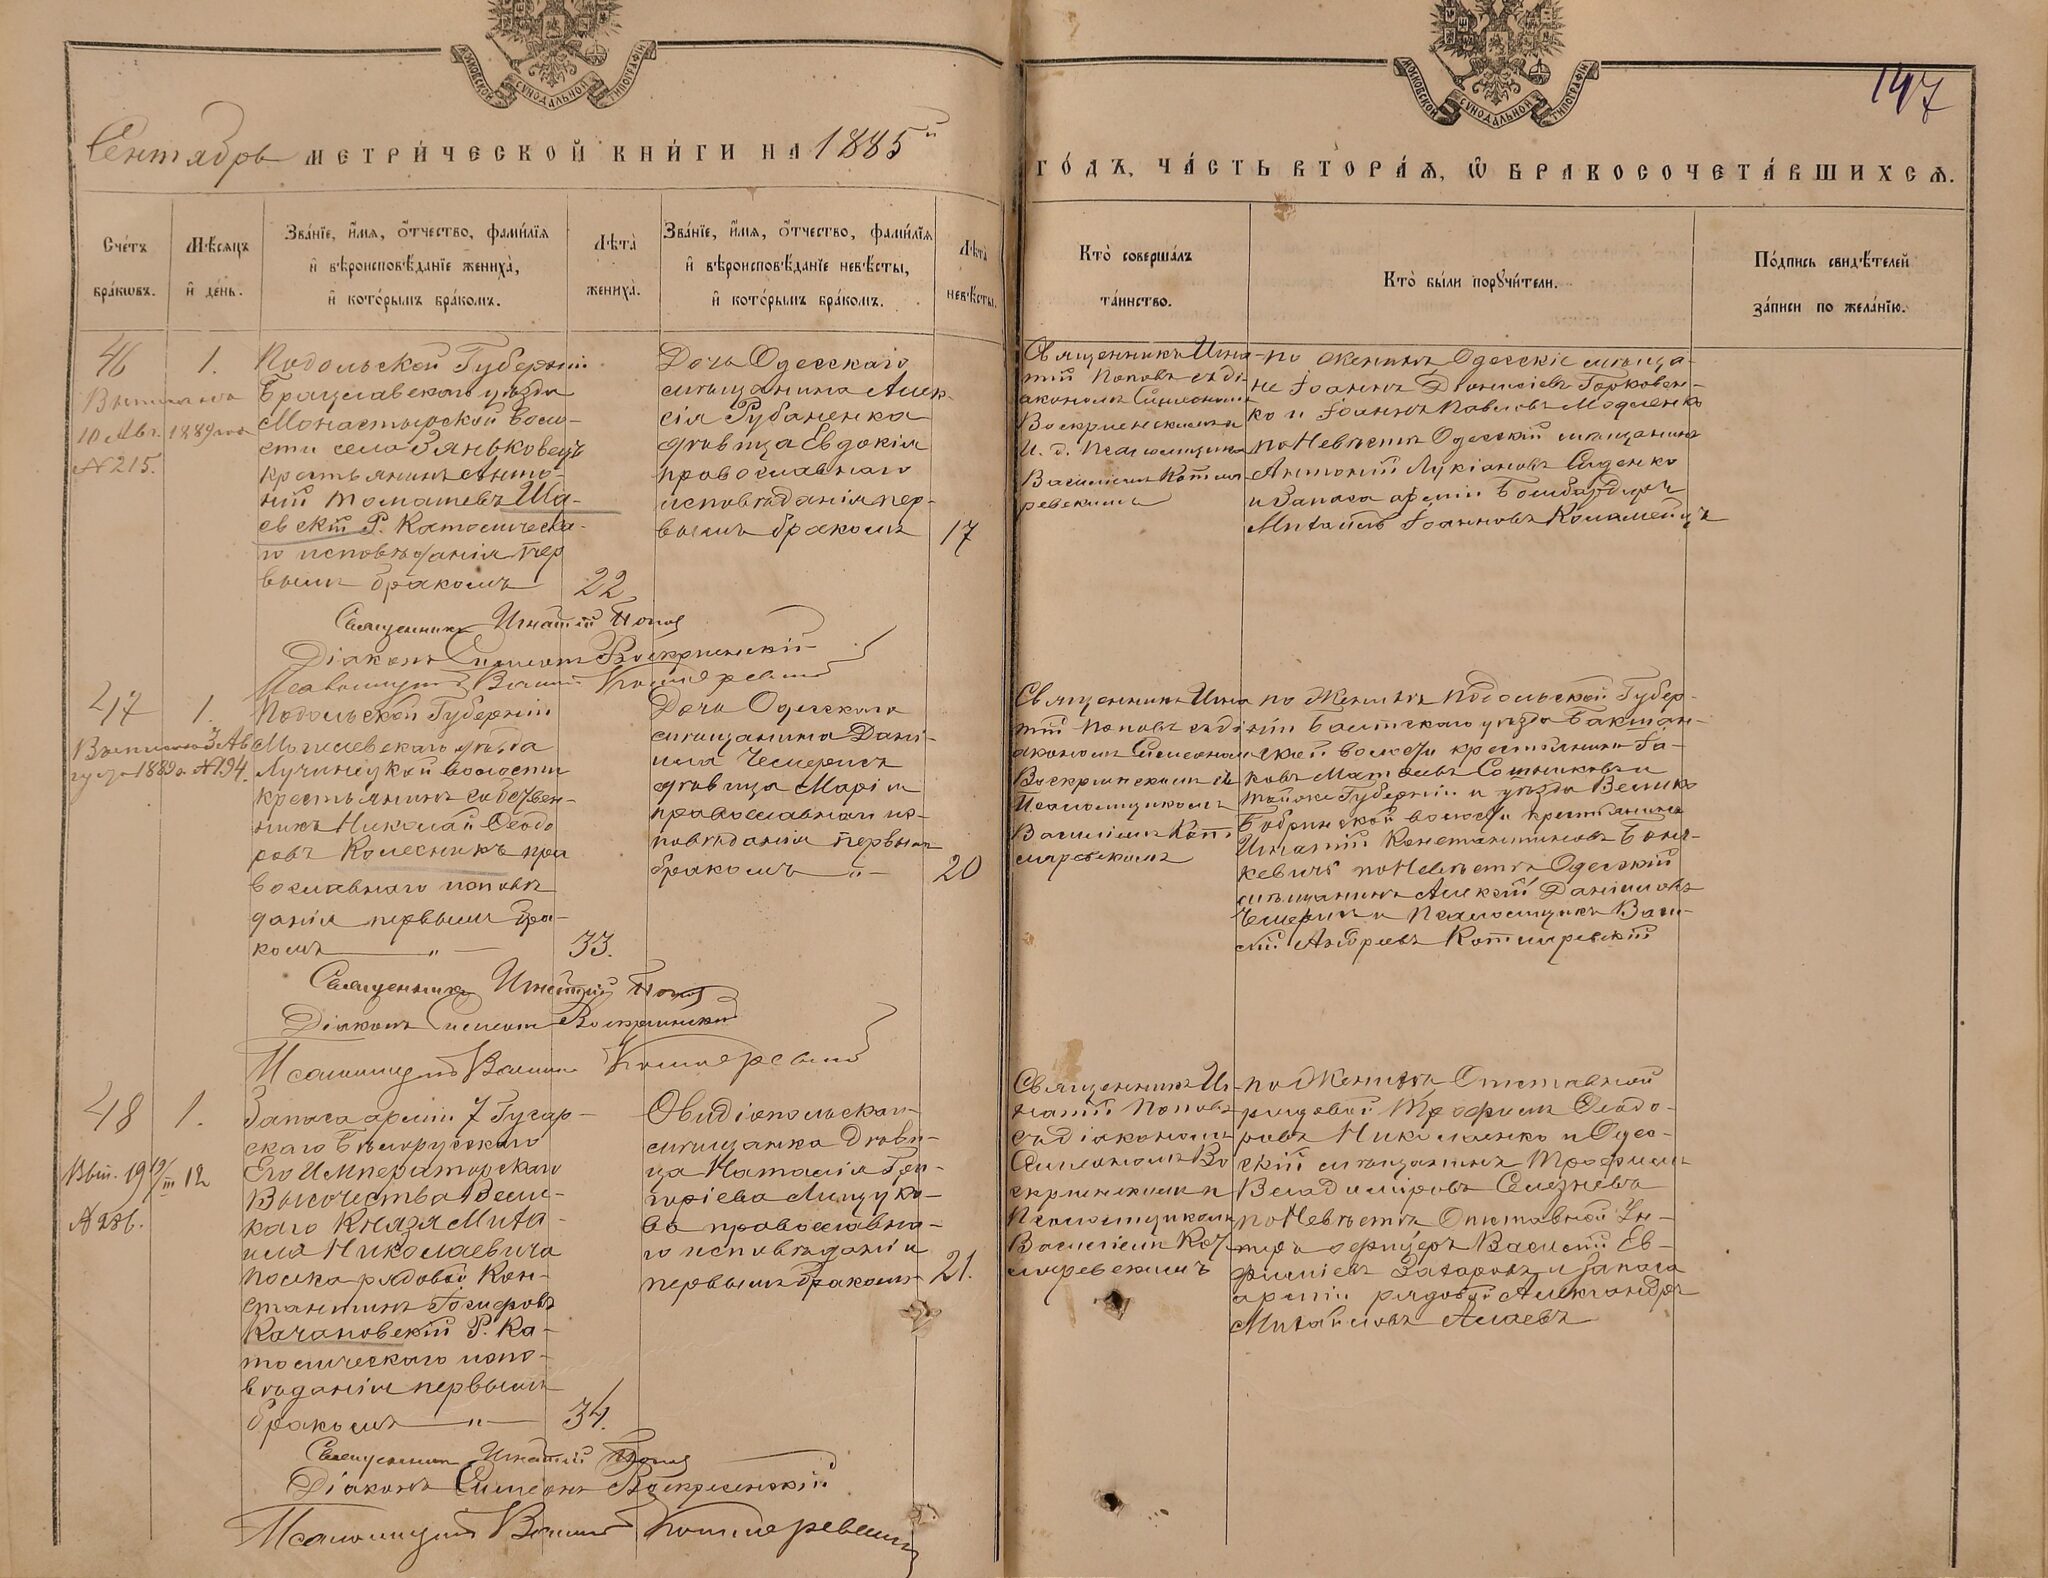 МОСКОВСКОЙ СУНОДАЛЬНОЙ ТИПОГРАФІИ
МОСКОВСКОЙ СУНОДАЛЬНОЙ ТИПОГРАФІИ
147
Сентябрь МЕТРИ́ЧЕСКОЙ КНИ́ГИ НА 1885й
ГО́ДЪ, ЧА́СТЬ ВТОРА́Я, Ѿ БРАКОСОЧЕТА́ВШИХСЯ.
Сче́тъ
бра́кωвъ.
Мѣ́сяцъ
и҆ де́нь.
Зва́нїе, и҆́мя, ѻ҆́тчество, фами́лїя
и҆ вѣроисповѣ́данїе жениха̀,
и҆ кото́рымъ бра́комъ.
Лѣ́та̀
жениха̀.
Зва́нїе, и҆́мя, ѻ҆́тчество, фами́лїя
и҆ вѣроисповѣ́данїе невѣ́сты,
и҆ кото́рымъ бра́комъ.
Лѣ́та̀
невѣ́сты.
Кто̀ соверша́лъ
та́инство.
Кто̀ бы́ли порꙋчи́тели.
По́дпись свидѣ́телей
за́писи по жела́нїю.
46
1.
10 Авг. 1889 года
№ 215.
Подольской Губерніи
Брацлавскаго уѣзда
Монастырской воло-
сти села Зяньковецъ
крестьянинъ Анто-
ній Томашевъ Ша-
евскій Р. Католическа-
го исповѣданія пер
вымъ бракомъ
22
Дочь Одесскаго
мѣщанина Алек-
сія Рубаненка
дѣвица Евдокія
православнаго
исповѣданія пер-
вымъ бракомъ
17
Священникъ Игна-
тій Поповъ съ ді
акономъ Симеономъ
Воскресенскимъ и
И. д. Псаломщика
Василіемъ Котля
ревскимъ
по Женихѣ Одесскіе мѣща-
не Іоаннъ Діонисіевъ Горковен-
ко и Іоаннъ Павловъ Модленко
по Невѣстѣ Одесскій мѣщанинъ
Антоній Лукіановъ Сиденко
и Запаса арміи Бомбардиръ
Михаилъ Іоанновъ Коламеецъ
Священникъ Игнатій Попов
Діаконъ Симеонъ Воскресенскій
Псаломщикъ Василій Котляревскій
47
1.
Выписано 3 Ав
густа 1889 г. № 194.
Подольской Губерніи
Могилевскаго уѣзда
Лучинецкой волости
крестьянинъ собствен-
никъ Николай Ѳеодо
ровъ Колесникъ пра
вославнаго исповѣ
данія первымъ бра-
комъ — „ —
33.
Дочь Одесскаго
мѣщанина Дані-
ила Чемерисъ
дѣвица Марія
православнаго ис-
повѣданія первымъ
бракомъ „ —
20
Священникъ Игна
тій Поповъ съ ді
акономъ Симеономъ
Воскресенскимъ съ
Псаломщикомъ
Василіемъ Кот
ляревскимъ
по Женихѣ Подольской Губер-
ніи Балтскаго уѣзда Бакшан-
ской волости крестьянинъ Іа-
ковъ Матѳеевъ Сотниковъ и
тойже Губерніи и уѣзда Велико
Бобринской волости крестьянинъ
Игнатій Константиновъ Бонч-
кевичъ по Невѣстѣ Одесскій
мѣщанинъ Алексій Даніиловъ
Чемерисъ и Псаломщикъ Васи-
лій Андреевъ Котляревскій
Священникъ Игнатій Попов
Діаконъ Симеонъ Воскресенскій
Псаломщикъ Василій Котляревскій
48
1.
Запаса арміи 7 Гусар-
скаго Бѣлорусскаго
Его Императорскаго
Высочества Вели-
каго Князя Миха-
ила Николаевича
полка рядовой Кон-
стантинъ Іосифовъ
Качановскій Р. Ка-
толическаго испо-
вѣданія первымъ
бракомъ — „ —
34.
Овидіопольская
мѣщанка дѣви-
ца Наталія Гри-
горіева Лищуко-
ва православна-
го исповѣданія
первымъ бракомъ
21.
Священникъ Иг-
натій Поповъ
съ діакономъ
Симеономъ Во
скресенскимъ и
Псаломщикомъ
Василіемъ Кот
ляревскимъ
по Женихѣ Отставной
рядовой Трофимъ Ѳеодо-
ровъ Николаенко и Одес-
скій мѣщанинъ Трофимъ
Владиміровъ Селезневъ
по Невѣстѣ Отставной Ун-
теръ офицеръ Василій Ев-
фиміевъ Захаровъ и запаса
арміи рядовой Александръ
Михайловъ Алаевъ
Священникъ Игнатій Попов
Діаконъ Симеонъ Воскресенскій
Псаломщикъ Василій Котляревскій